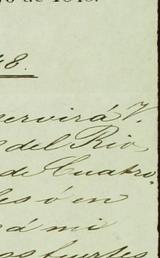 de 1848.
48.
servirá V.
del Rio
de Cuatro
les ó en
rá mi
os fuertes